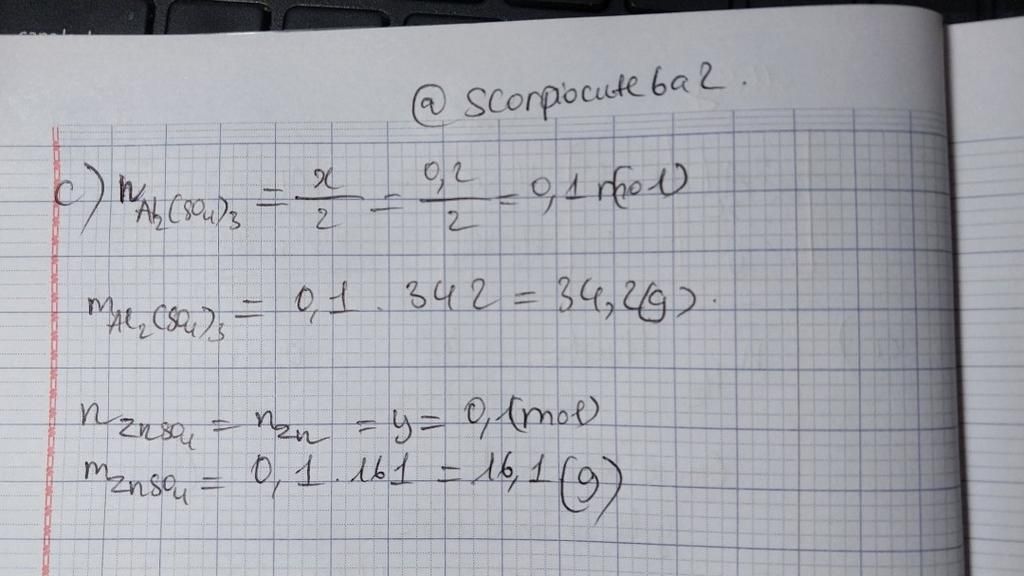 @ scorpiocute6a2.
c) n Al2(SO4)3 = x/2 = 0,2/2 = 0,1 mol
m Al2(SO4)3 = 0,1 . 342 = 34,2(g).
n ZnSO4 = n Zn = y = 0,1(mol)
m ZnSO4 = 0,1 . 161 = 16,1 (g)